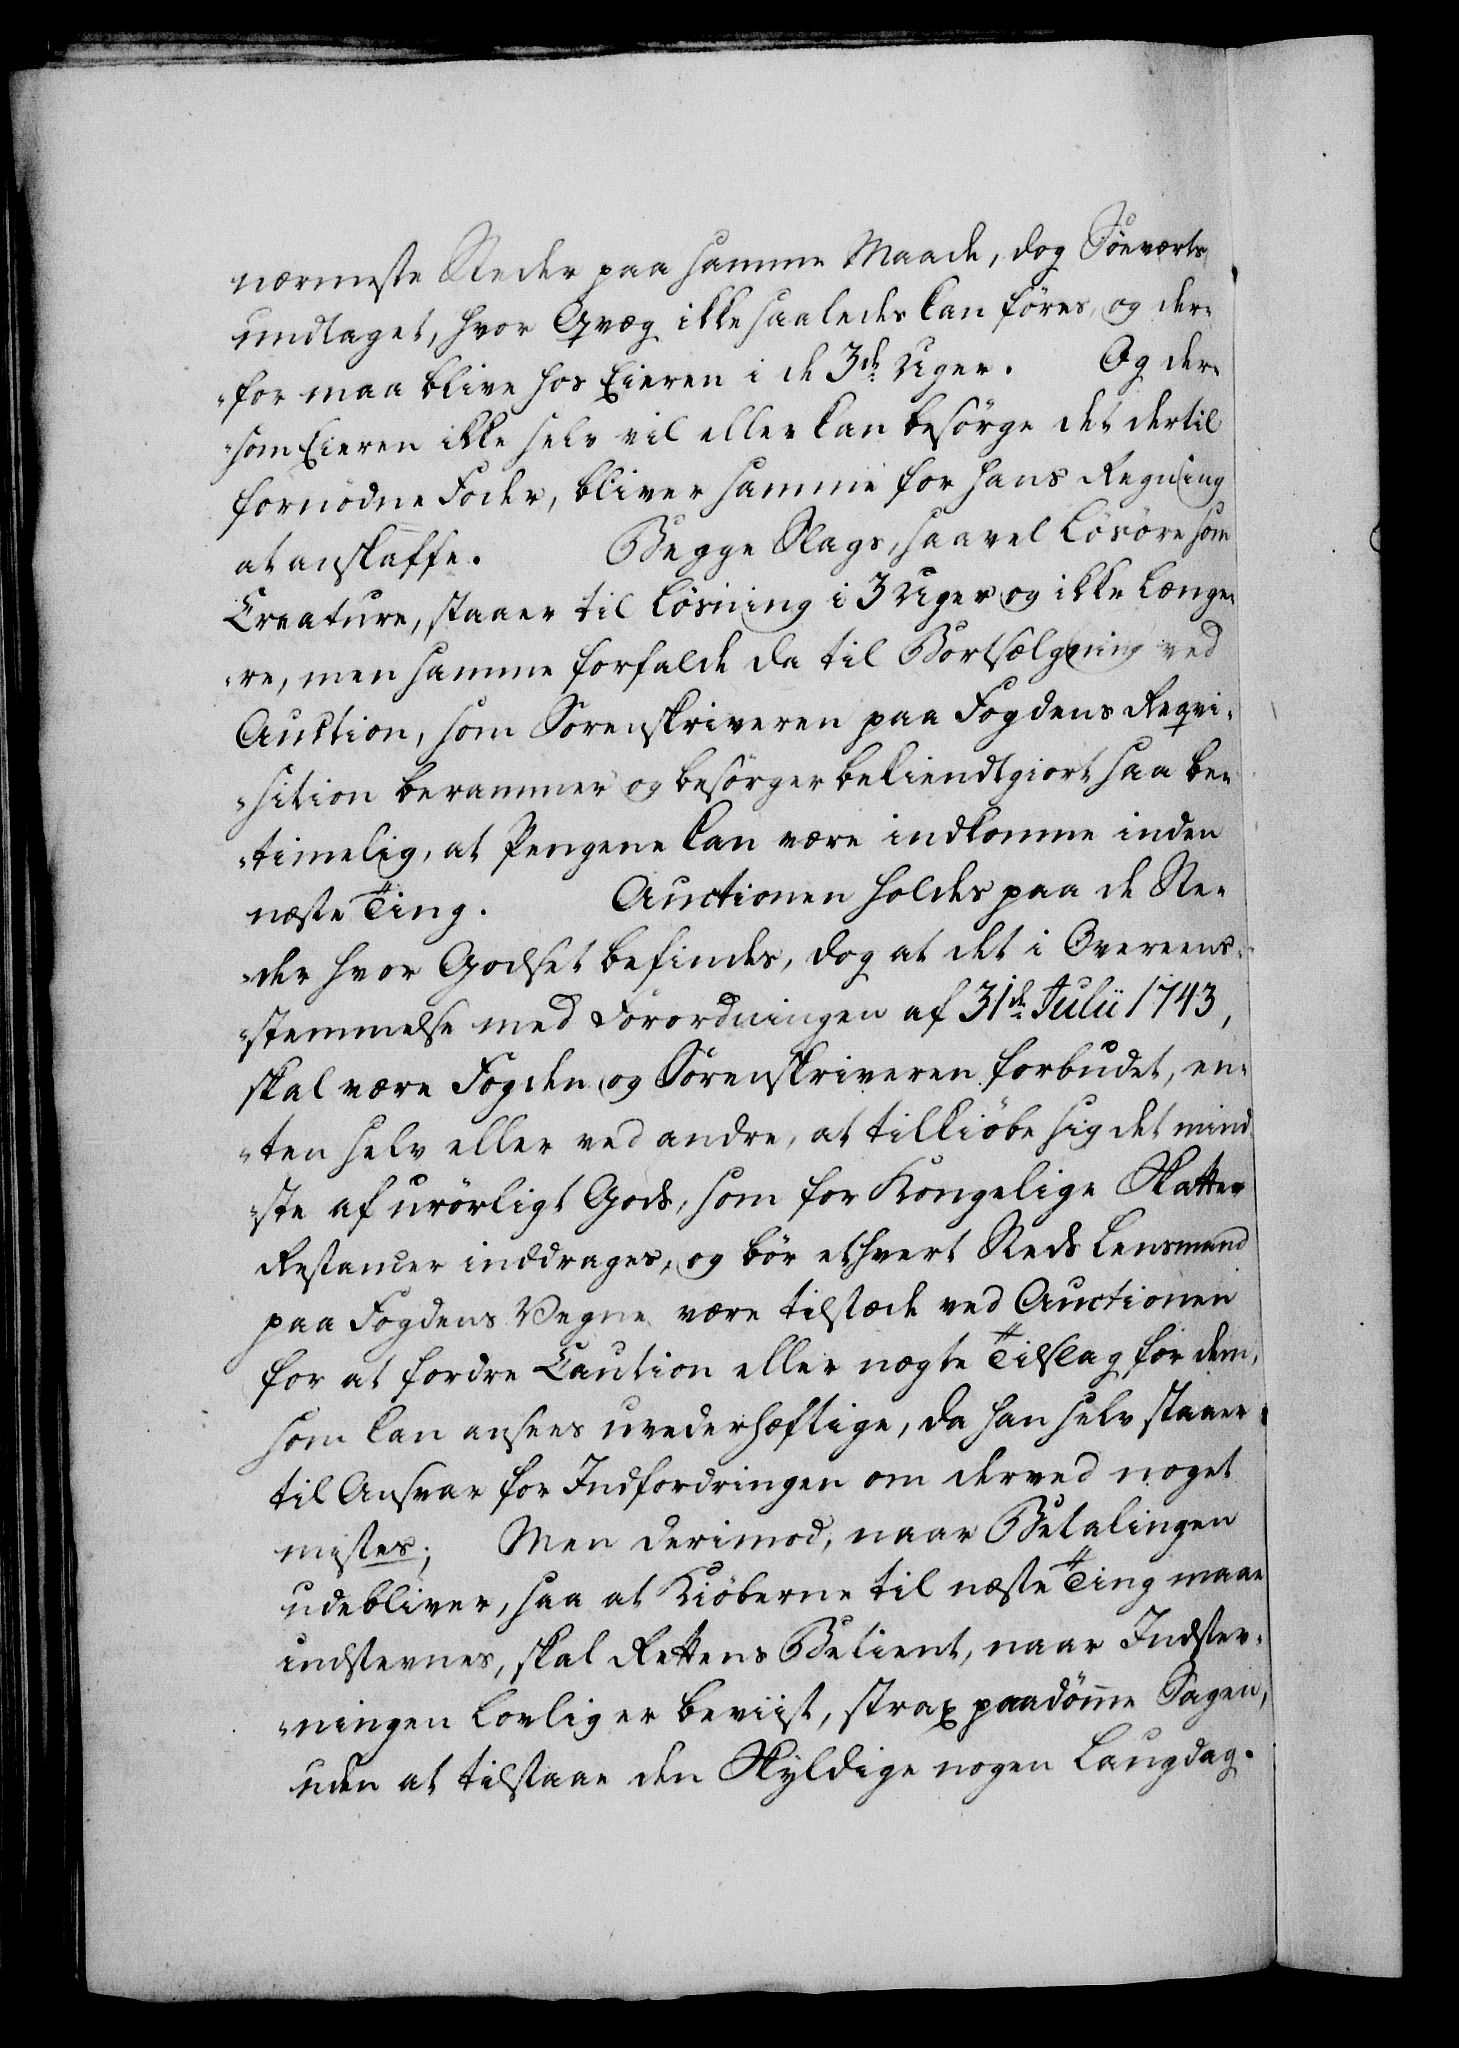 nærmeste Steder paa samme Maade, dog Søeverts
undtaget, hvor Qvæg ikke saaledes kan føres, og der-
-for maa blive hos Eieren i de 3de Uger. Og der-
-som Eieren ikke selv vil eller kan besørge det dertil
fornødne Foder, bliver samme for hans Regning
at anskaffe. Begge Slags, saavel Løsøre som
Creature, staaer til Løsning i 3 Uger og ikke længe-
-re, men samme forfalde da til Bortsælgning ved
Auction, som Sorenskriveren paa Fogdens Reqvi-
-sition berammer og besørger bekiendtgiort saa be-
-timelig, at Pengene kan være indkomne inden
næste Ting. Auctionen holdes paa de Ste-
-der hvor Godset befindes, dog at det i Overeens-
-stemmelse med Forordningen af 31de Julii 1743,
skal være Fogden og Sorenskriveren forbudet, en-
-ten selv eller ved andre, at tilkiøbe sig det mind-
-ste af urørligt Gods, som for Kongelige Skatter
Restancer inddrages, og bør ethvert Steds Lensmand
paa Fogdens Vegne være tilstæde ved Auctionen
for at fordre Caution eller nægte Tilslag for dem,
som kan ansees uvederhæftige, da han selv staaer
til Ansvar for Indfordringen om derved noget
mistes; Men derimod, naar Betalingen
udebliver, saa at Kiøberne til næste Ting maae
indstevnes, skal Rettens Betient, naar Indstev-
-ningen lovlig er beviist, strax paadømme Sagen,
uden at tilstaae den Skyldige nogen Laugdag.